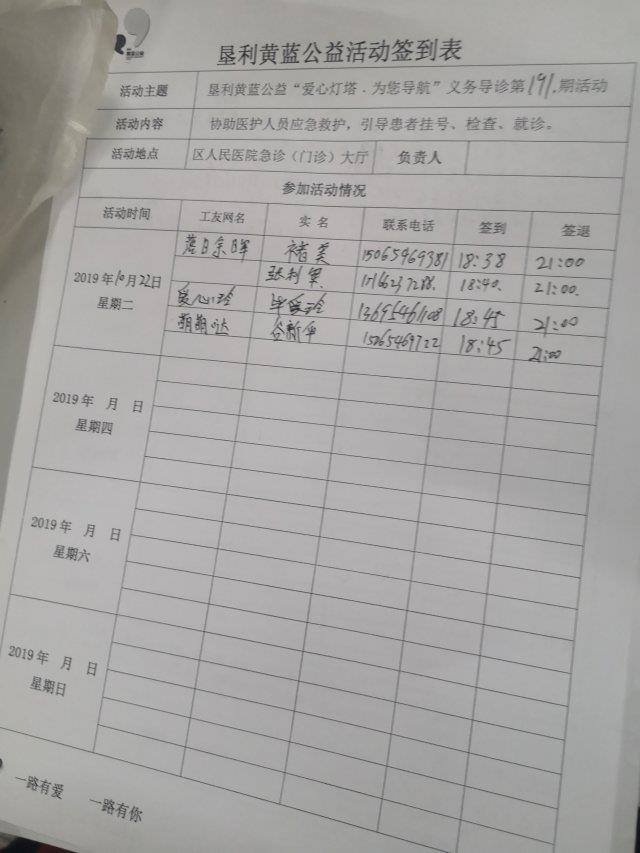 垦利黄蓝公益活动签到表
活动主题 垦利黄蓝公益“爱心灯塔．为您导航”义务导诊第191.期活动
活动内容 协助医护人员应急救护，引导患者挂号、检查、就诊。
活动地点 区人民医院急诊（门诊）大厅 负责人
参加活动情况
活动时间 工友网名 实 名 联系电话 签到 签退
褚美 15065469381 18:38 21:00
2019年10月22日 张利 18:40. 21:00.
星期二 爱心玲 毕爱玲 13695461108 18:45 21:00
期期哒 谷新华 15265469722 18:45 21:00
2019年 月 日
星期四
2019年 月 日
星期六
2019年 月 日
星期日
一路有爱 一路有你